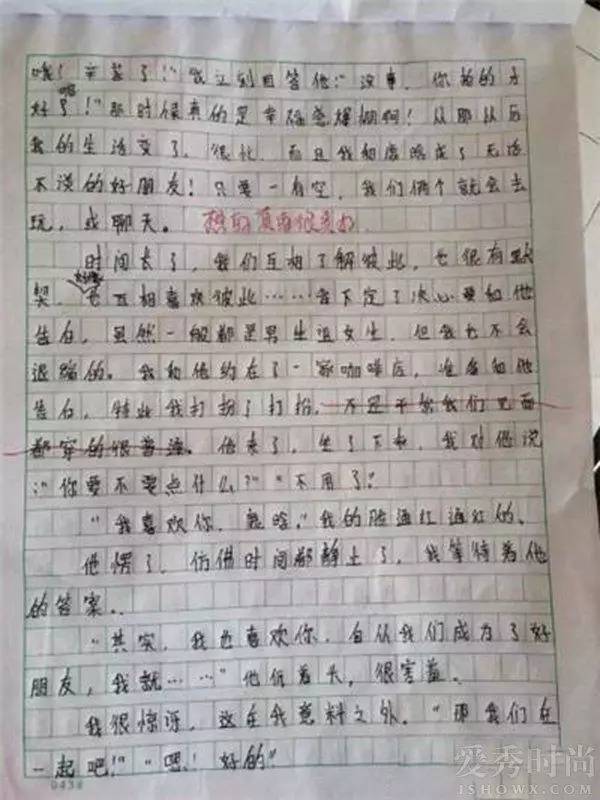 哦！辛苦了！"我立刻回答他！"没事，你拍的才
嗯
好！"那时候真的是幸福感爆棚啊！从那从后
我的生活变了，很忙，而且我和鹿晗成了无话
不谈的好朋友！只要一有空，我们俩个就会去
玩，或聊天。 想的真的很美妙
时间长了，我们互相了解彼此，也很有默
契，好像也互相喜欢彼此……音下定了决心要和他
告白，虽然一般都是男生追女生，但我也不会
退缩的。我和他约在了一家咖啡店，准备和他
告白，特此我打扮了打扮，不是平常我们见面
都穿的很普通。他来了，坐了下来，我对他说
："你要不要点什么？""不用了！"
"我喜欢你，鹿晗。"我的脸通红通红的、
他愣了，仿佛时间都静止了，我等待着他
的答案。
"其实，我也喜欢你，自从我们成为了好
朋友，我就……"他低着头，很害羞、
我很惊讶，这在我意料之外，"那我们在
一起吧！""嗯！好的"
0438
爱秀时尚
ISHOWX.COM